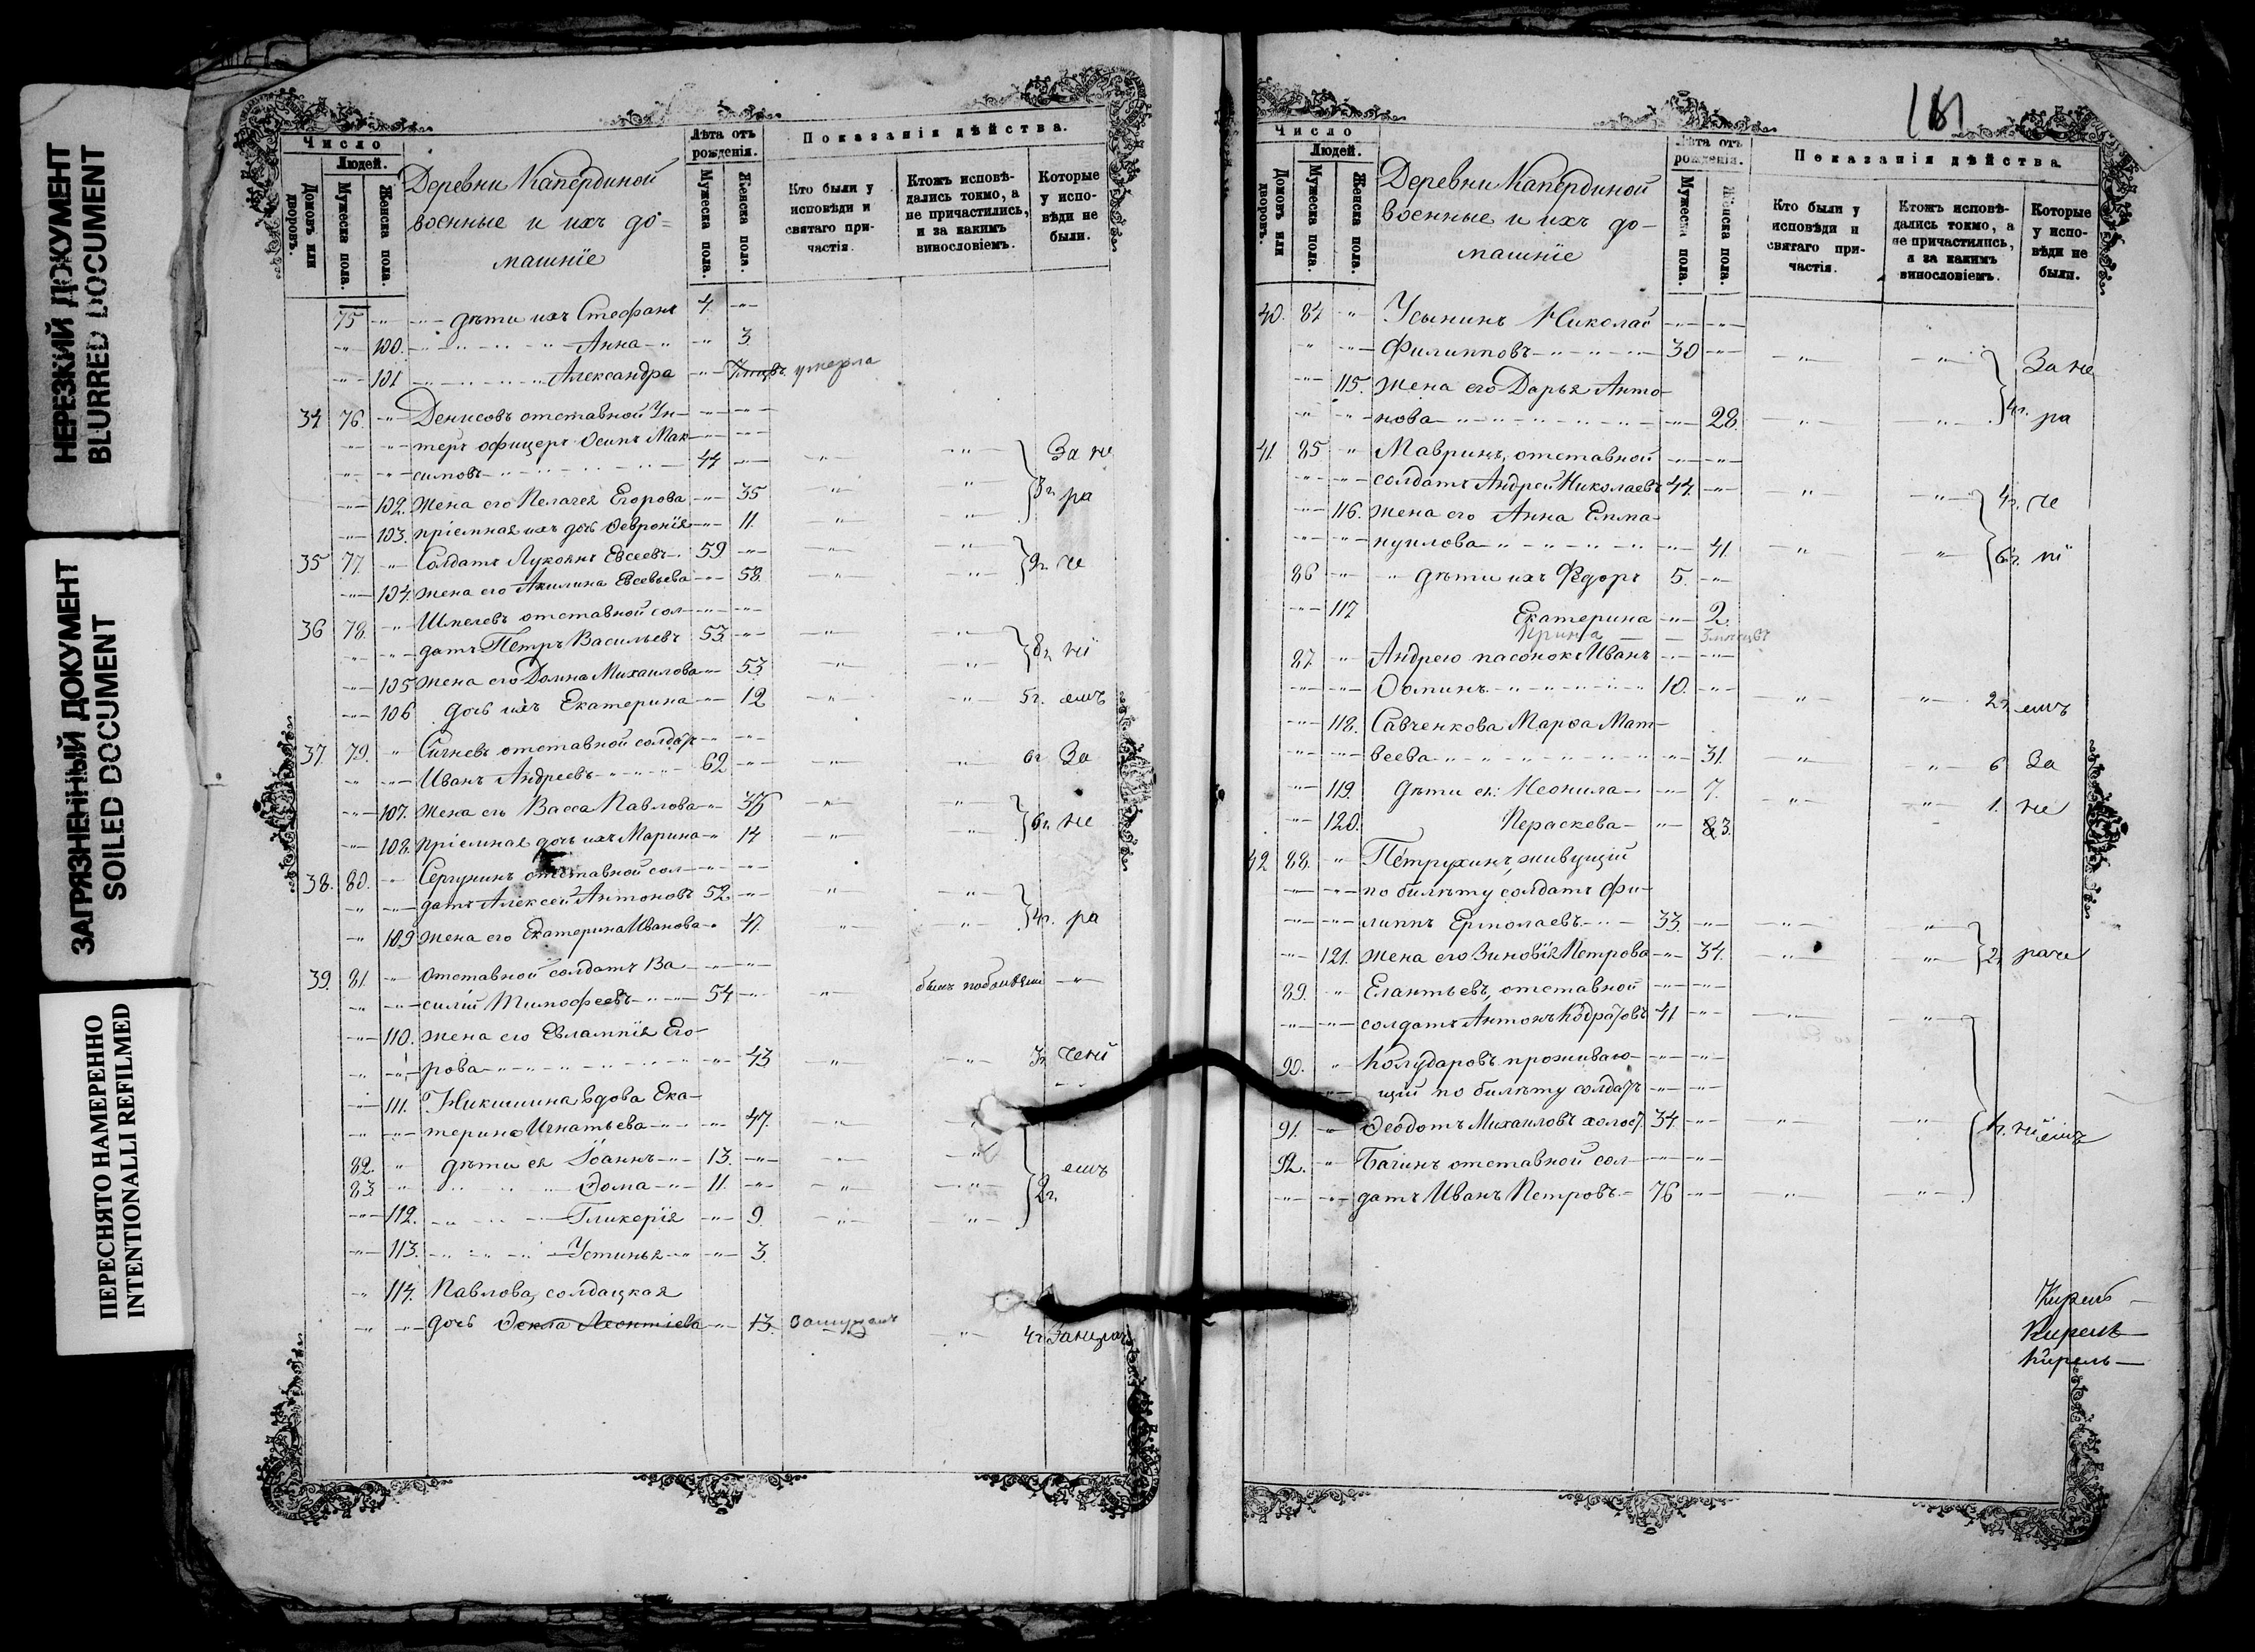 НЕРЕЗКИЙ ДОКУМЕНТ
BLURRED DOCUMENT
ЗАГРЯЗНЕННЫЙ ДОКУМЕНТ
SOILED DOCUMENT
ПЕРЕСНЯТО НАМЕРЕННО
INTENTIONALLI REFILMED
Число
Людей.
Домовъ или дворовъ.
Мужеска пола.
Женска пола.
Деревни Капердиной
военные и ихъ до=
машніе
Лѣта отъ рожденія.
Мужеска пола.
Женска пола.
Показанія дѣйства.
Кто были у исповѣди и святаго причастія.
Ктожъ исповѣдались токмо, а не причастились, и за какимъ винословіемъ.
Которые у исповѣди не были.
75 дѣти ихъ Стефанъ 4
100. Анна 3
101 Александра умерла
34 76. Денисовъ отставной Ун-
теръ офицеръ Осипъ Мак-
симовъ 44 За не
102. Жена его Пелагея Егорова 35 ра
103. пріемная ихъ дочь Февронія 11.
35 77. Солдатъ Лукоянъ Евсеевъ 59
104. жена его Акилина Евсевьева 58. 9г. че
36 78. Шмелевъ отставной сол-
датъ Петръ Васильевъ 53
105 жена его Домна Михаилова 53 8г. ні
106 дочь ихъ Екатерина 12 5г. емъ
37. 79. отставной солдатъ
Иванъ Андреевъ 62 6г За
107. жена его Васса Павлова
108. пріемная дочь ихъ Марина 14 6г. не
38. 80. Сергунинъ отставной сол-
датъ Алексей Антоновъ 52
109 жена его Екатерина Иванова 41. 4г. ра
39. 81. Отставной солдатъ Ва-
силій Тимофеевъ 54
110. жена его Евлампія Его-
рова 43 3г чені
111. Никишина вдова Ека-
терина Игнатьева 47.
82. дѣти ея Іоаннъ 13. емъ
83 Фома 11. 2г.
112. Гликерія 9
113. Устинья 3
114. Павлова, солдацкая
дочь Фекла Леонтіева 13. Замужемъ 4г
Число
Людей.
Домовъ или дворовъ.
Мужеска пола.
Женска пола.
Деревни Капердиной
военные и ихъ до-
машніе
Лѣта отъ рожденія.
Мужеска пола.
Женска пола.
Показанія дѣйства
Кто были у исповѣди и святаго причастія.
Ктожъ исповѣдались токмо, а не причастились, и за какимъ винословіемъ.
Которые у исповѣди не были.
40. 84 Усынинъ Николай
Филипповъ 30 За не
115. жена его Дарья Анто-
нова 28. 4г. ра
41. 85 Мавринъ, отставной
солдатъ Андрей Николаевъ 44. 4г. че
116. жена его Анна Емма-
нуилова 41. 6г. ні
86 дѣти ихъ Федоръ 5.
117 Екатерина 2.
Ирина 3 мѣсяцевъ
87. Андрею пасонокъ Иванъ
Фоминъ 10. 2г. емъ
118. Савченкова Марфа Мат-
веева 31. 6 За
119. дѣти ея: Неонила 7. 1. не
120. Пераскева 3.
42 88. Петрухинъ, живущій
по билѣту солдатъ Фи-
липпъ Ермолаевъ 33.
121. жена его Зиновія Петрова 34. 2г раче
89. Елантьевъ, отставной
солдатъ Антонъ 41
90. Колударовъ проживаю-
щій по билѣту солдатъ
91. Феодотъ Михаиловъ холост. 34. ніемъ
92. Багинъ отставной сол-
датъ Иванъ Петровъ 76